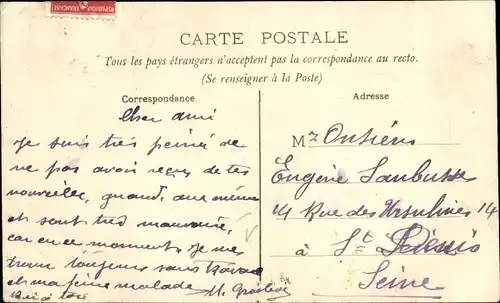 REPUBLIQUE FRANCAISE
CARTE POSTALE
Tous les pays étrangers n'acceptent pas la correspondance au recto.
(Se renseigner à la Poste)
Correspondance
Cher ami
Je suis très peiné de
ne pas avoir reçu de tes
nouvelles, quand même
et sont très mauvaise,
car en ce moment, je me
trouve toujours sans travail
et ma femme malade
Adresse
Mr
Eugène
14 Rue des Ursulines 14
à St Denis
Seine